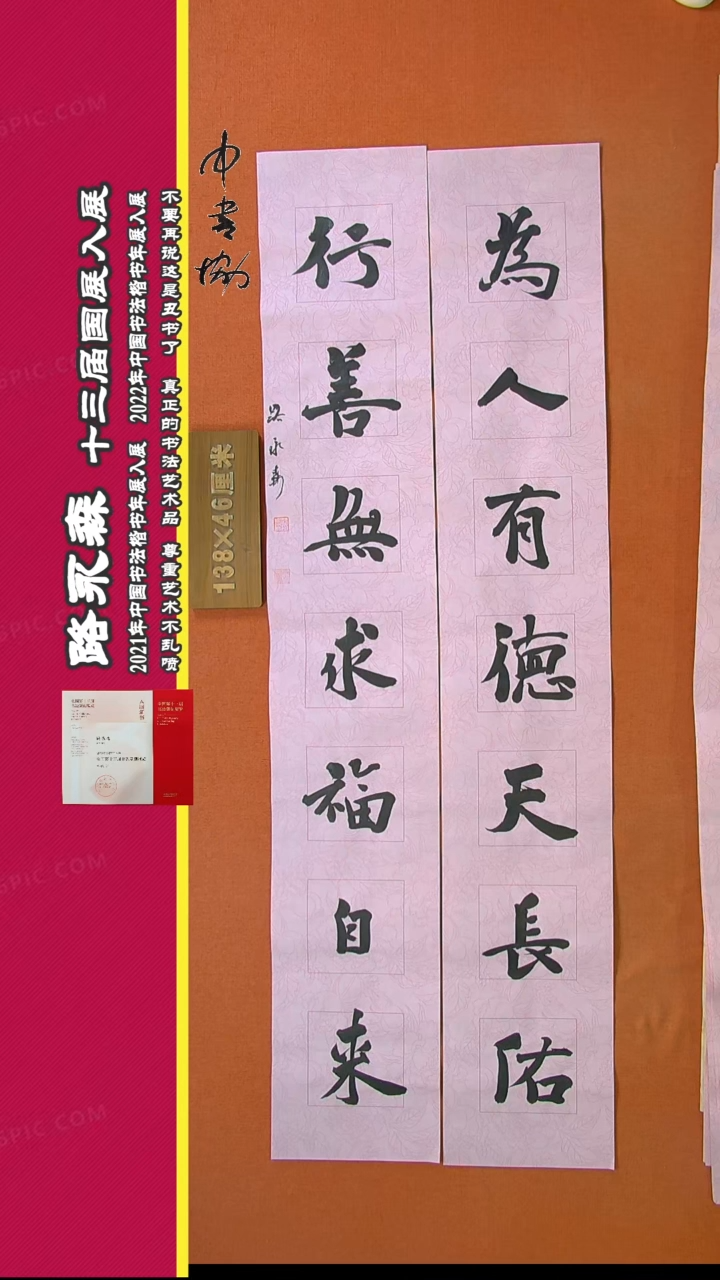 為人有德天長佑
行善無求福自来
路永森
中书协
138×46厘米
路永森 十三届国展入展
2021年中国书法楷书年展入展 2022年中国书法楷书年展入展
不要再说这是丑书了 真正的书法艺术品 尊重艺术不乱喷